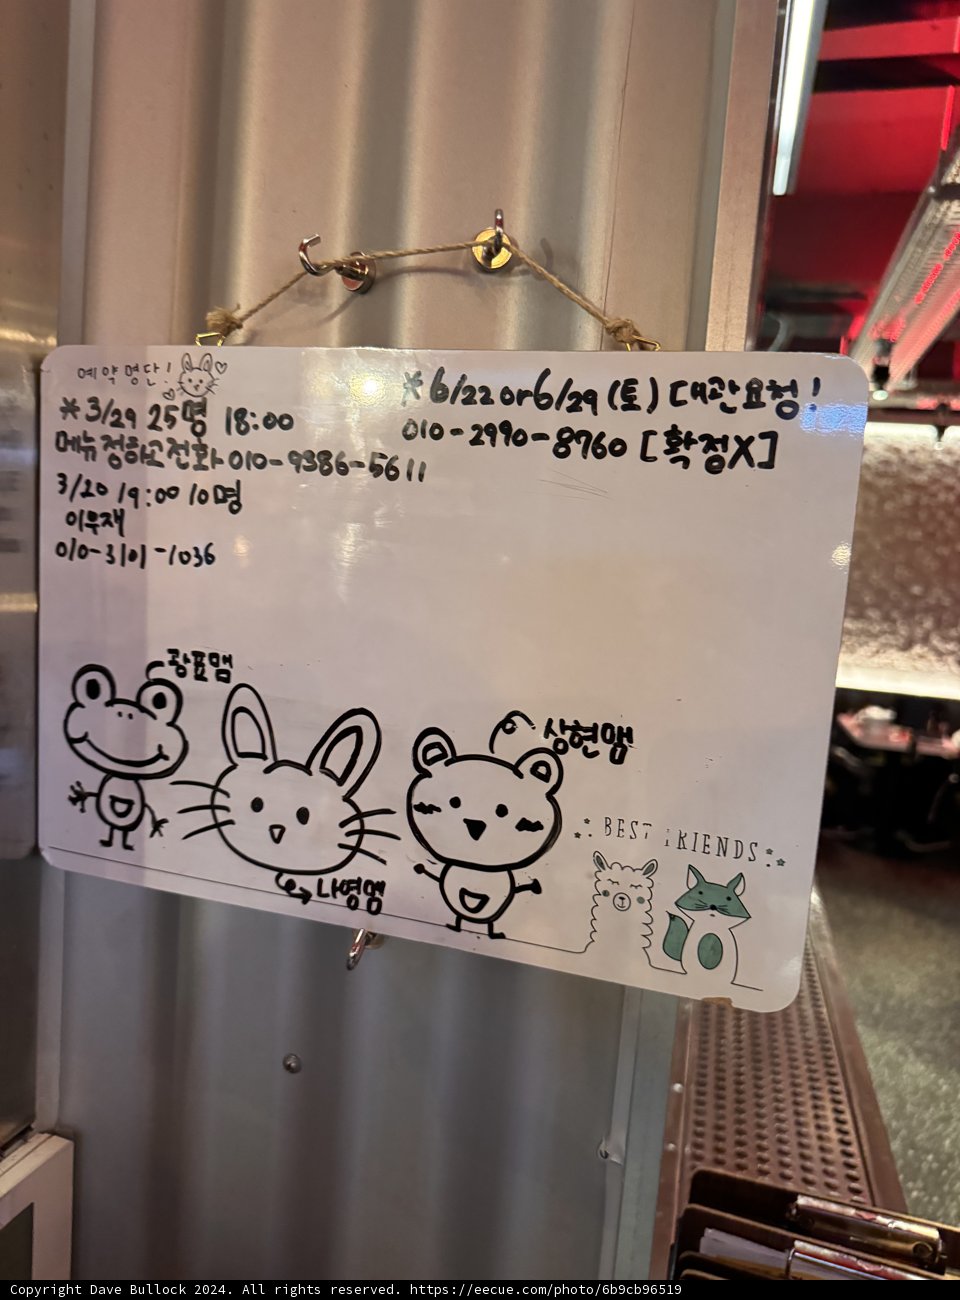 예약 명단!
* 3/29 25명 18:00
메뉴 정하고 전화 010-9386-5611
3/20 19:00 10명
이우재
010-3101-1036
* 6/22 or 6/29 (토) 대관요청!
010-2990-8760 [확정X]
광표맴
나영맴
상현맴
BEST FRIENDS
Copyright Dave Bullock 2024. All rights reserved. https://eecue.com/photo/6b9cb96519